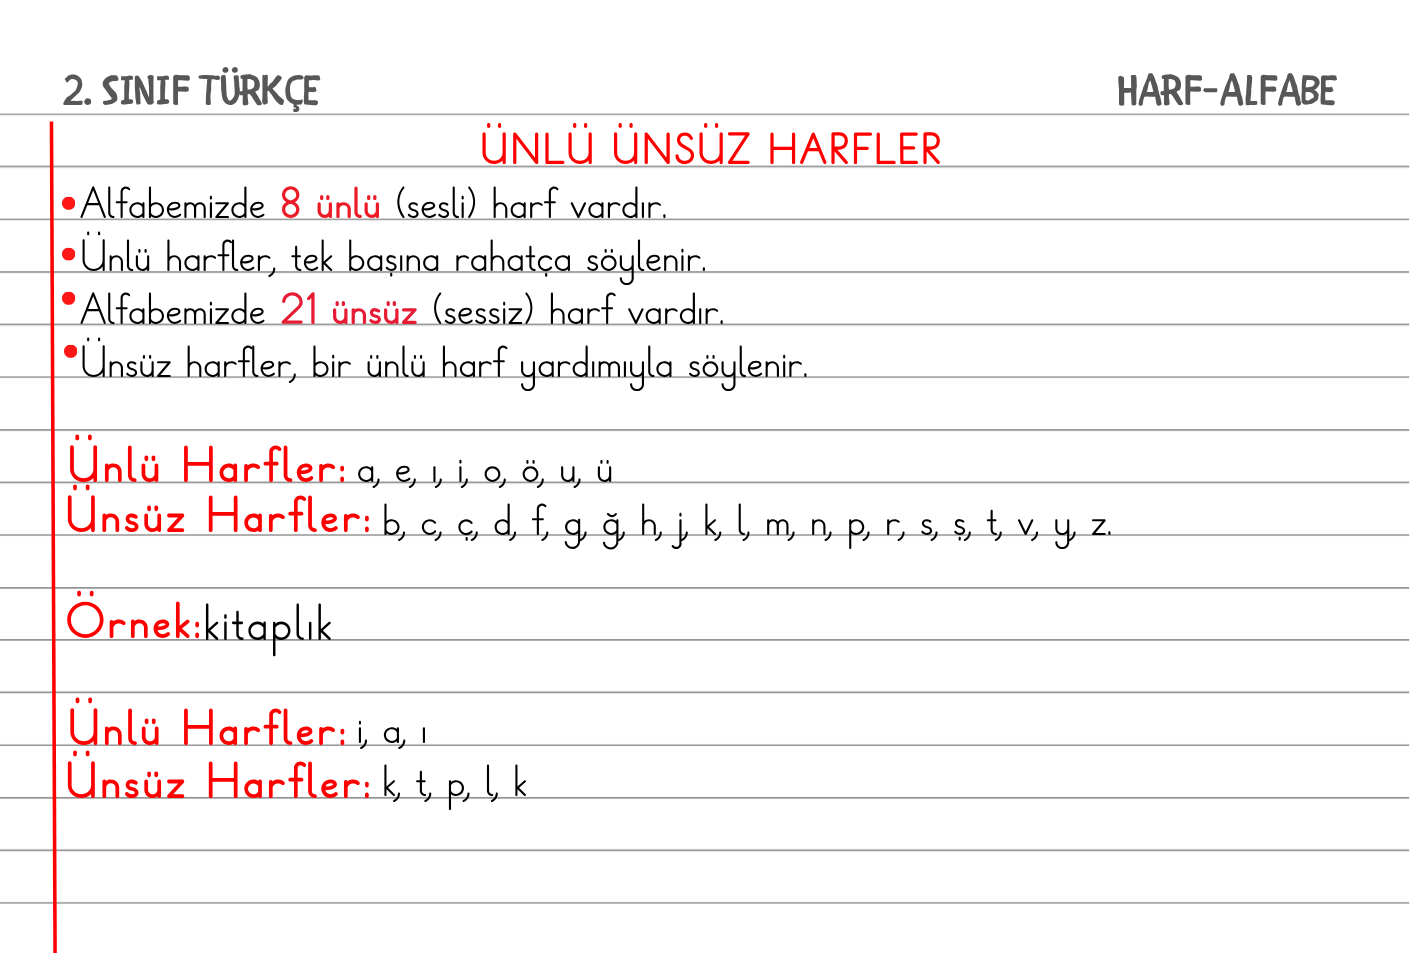 2. SINIF TÜRKÇE
HARF-ALFABE
ÜNLÜ ÜNSÜZ HARFLER
• Alfabemizde 8 ünlü (sesli) harf vardır.
• Ünlü harfler, tek başına rahatça söylenir.
• Alfabemizde 21 ünsüz (sessiz) harf vardır.
• Ünsüz harfler, bir ünlü harf yardımıyla söylenir.
Ünlü Harfler: a, e, ı, i, o, ö, u, ü
Ünsüz Harfler: b, c, ç, d, f, g, ğ, h, j, k, l, m, n, p, r, s, ş, t, v, y, z.
Örnek:kitaplık
Ünlü Harfler: i, a, ı
Ünsüz Harfler: k, t, p, l, k